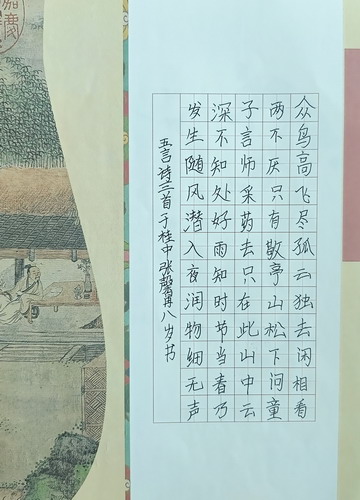 众鸟高飞尽孤云独去闲相看
两不厌只有敬亭山松下问童
子言师采药去只在此山中云
深不知处好雨知时节当春乃
发生随风潜入夜润物细无声
五言诗三首于桂中张馨冉八岁书